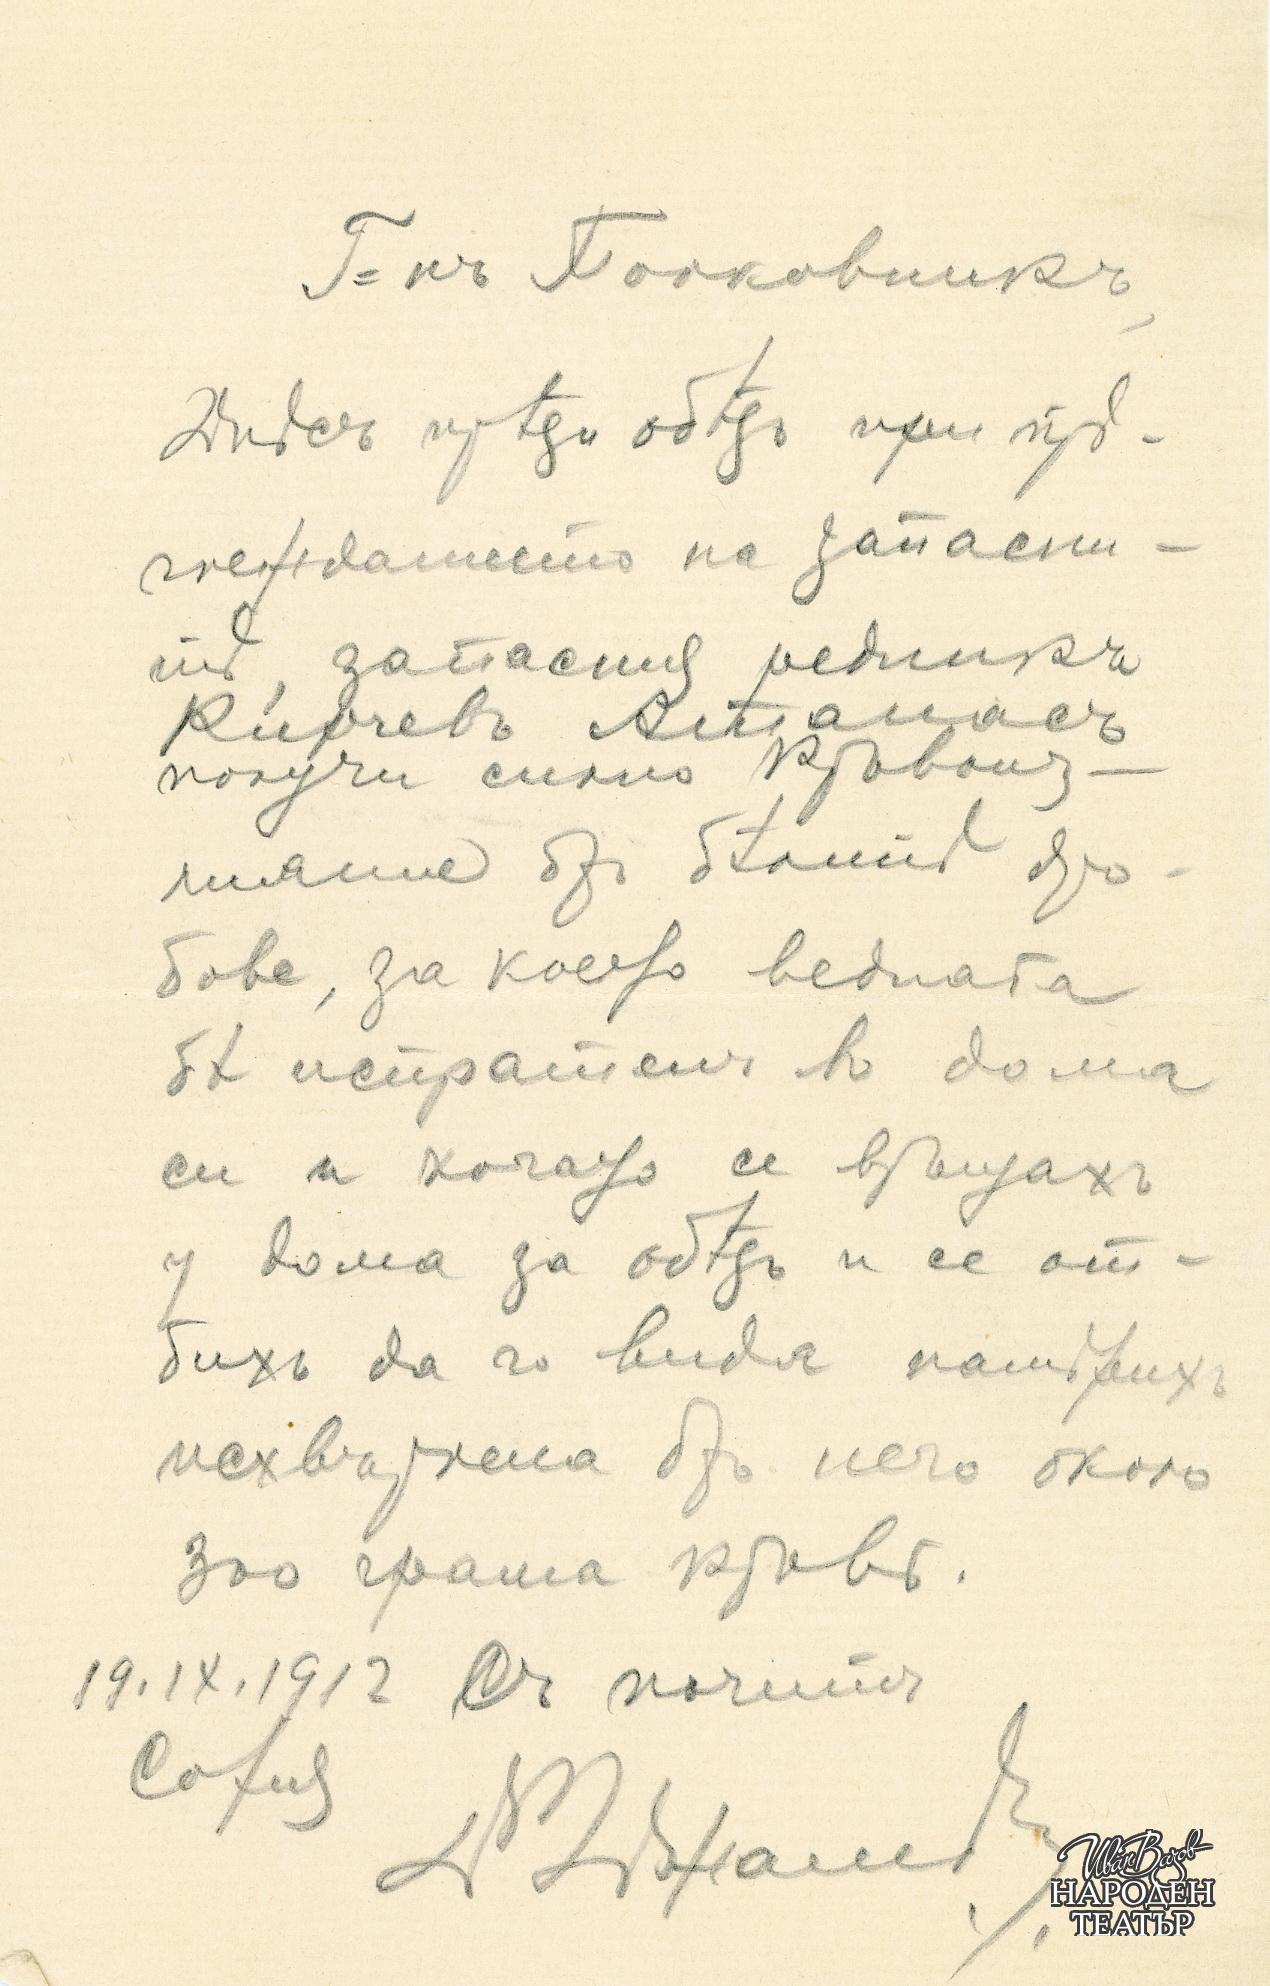 Г=нъ Полковникъ,
Днесъ прѣди обѣдъ при прѣ-
глежданието на запасни-
тѣ, запасния редникъ
Кирчевъ Атанасъ
получи силно кръвоиз-
лияние отъ бѣлитѣ дро-
бове, за което веднага
бѣ испратенъ въ дома
си и когато се връщахъ
у дома за обѣдъ и се от-
бихъ да го видя намѣрихъ
исхвърлена отъ него около
300 грама кръвь.
19.IX.1912 Съ почить
София
Иван Вазов
НАРОДЕН
ТЕАТЪР